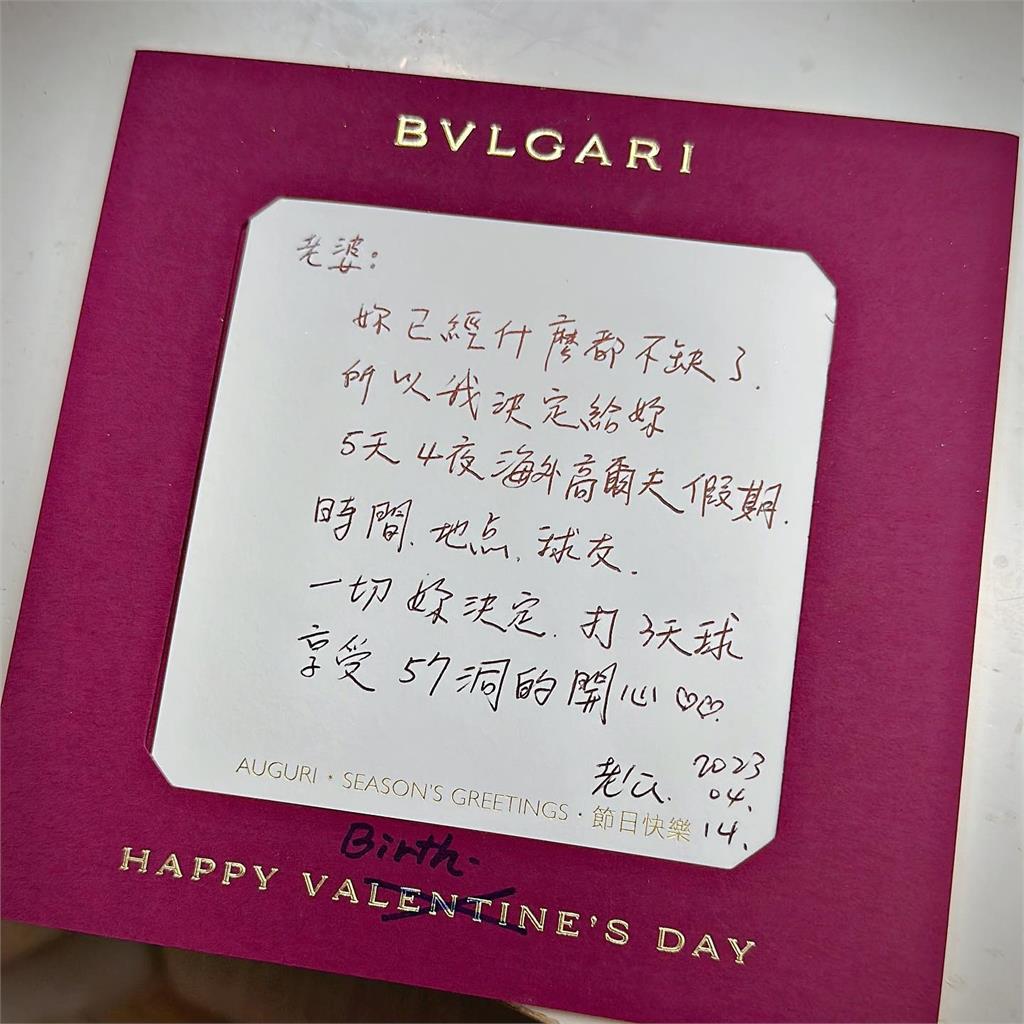 BVLGARI
老婆：
妳已經什麼都不缺了.
所以我決定給妳
5天4夜海外高爾夫假期.
時間.地点.球友.
一切妳決定.打3天球
享受57洞的開心♡♡.
老公. 2023
04.
14.
AUGURI · SEASON'S GREETINGS · 節日快樂
Birth-
HAPPY VALENTINE'S DAY